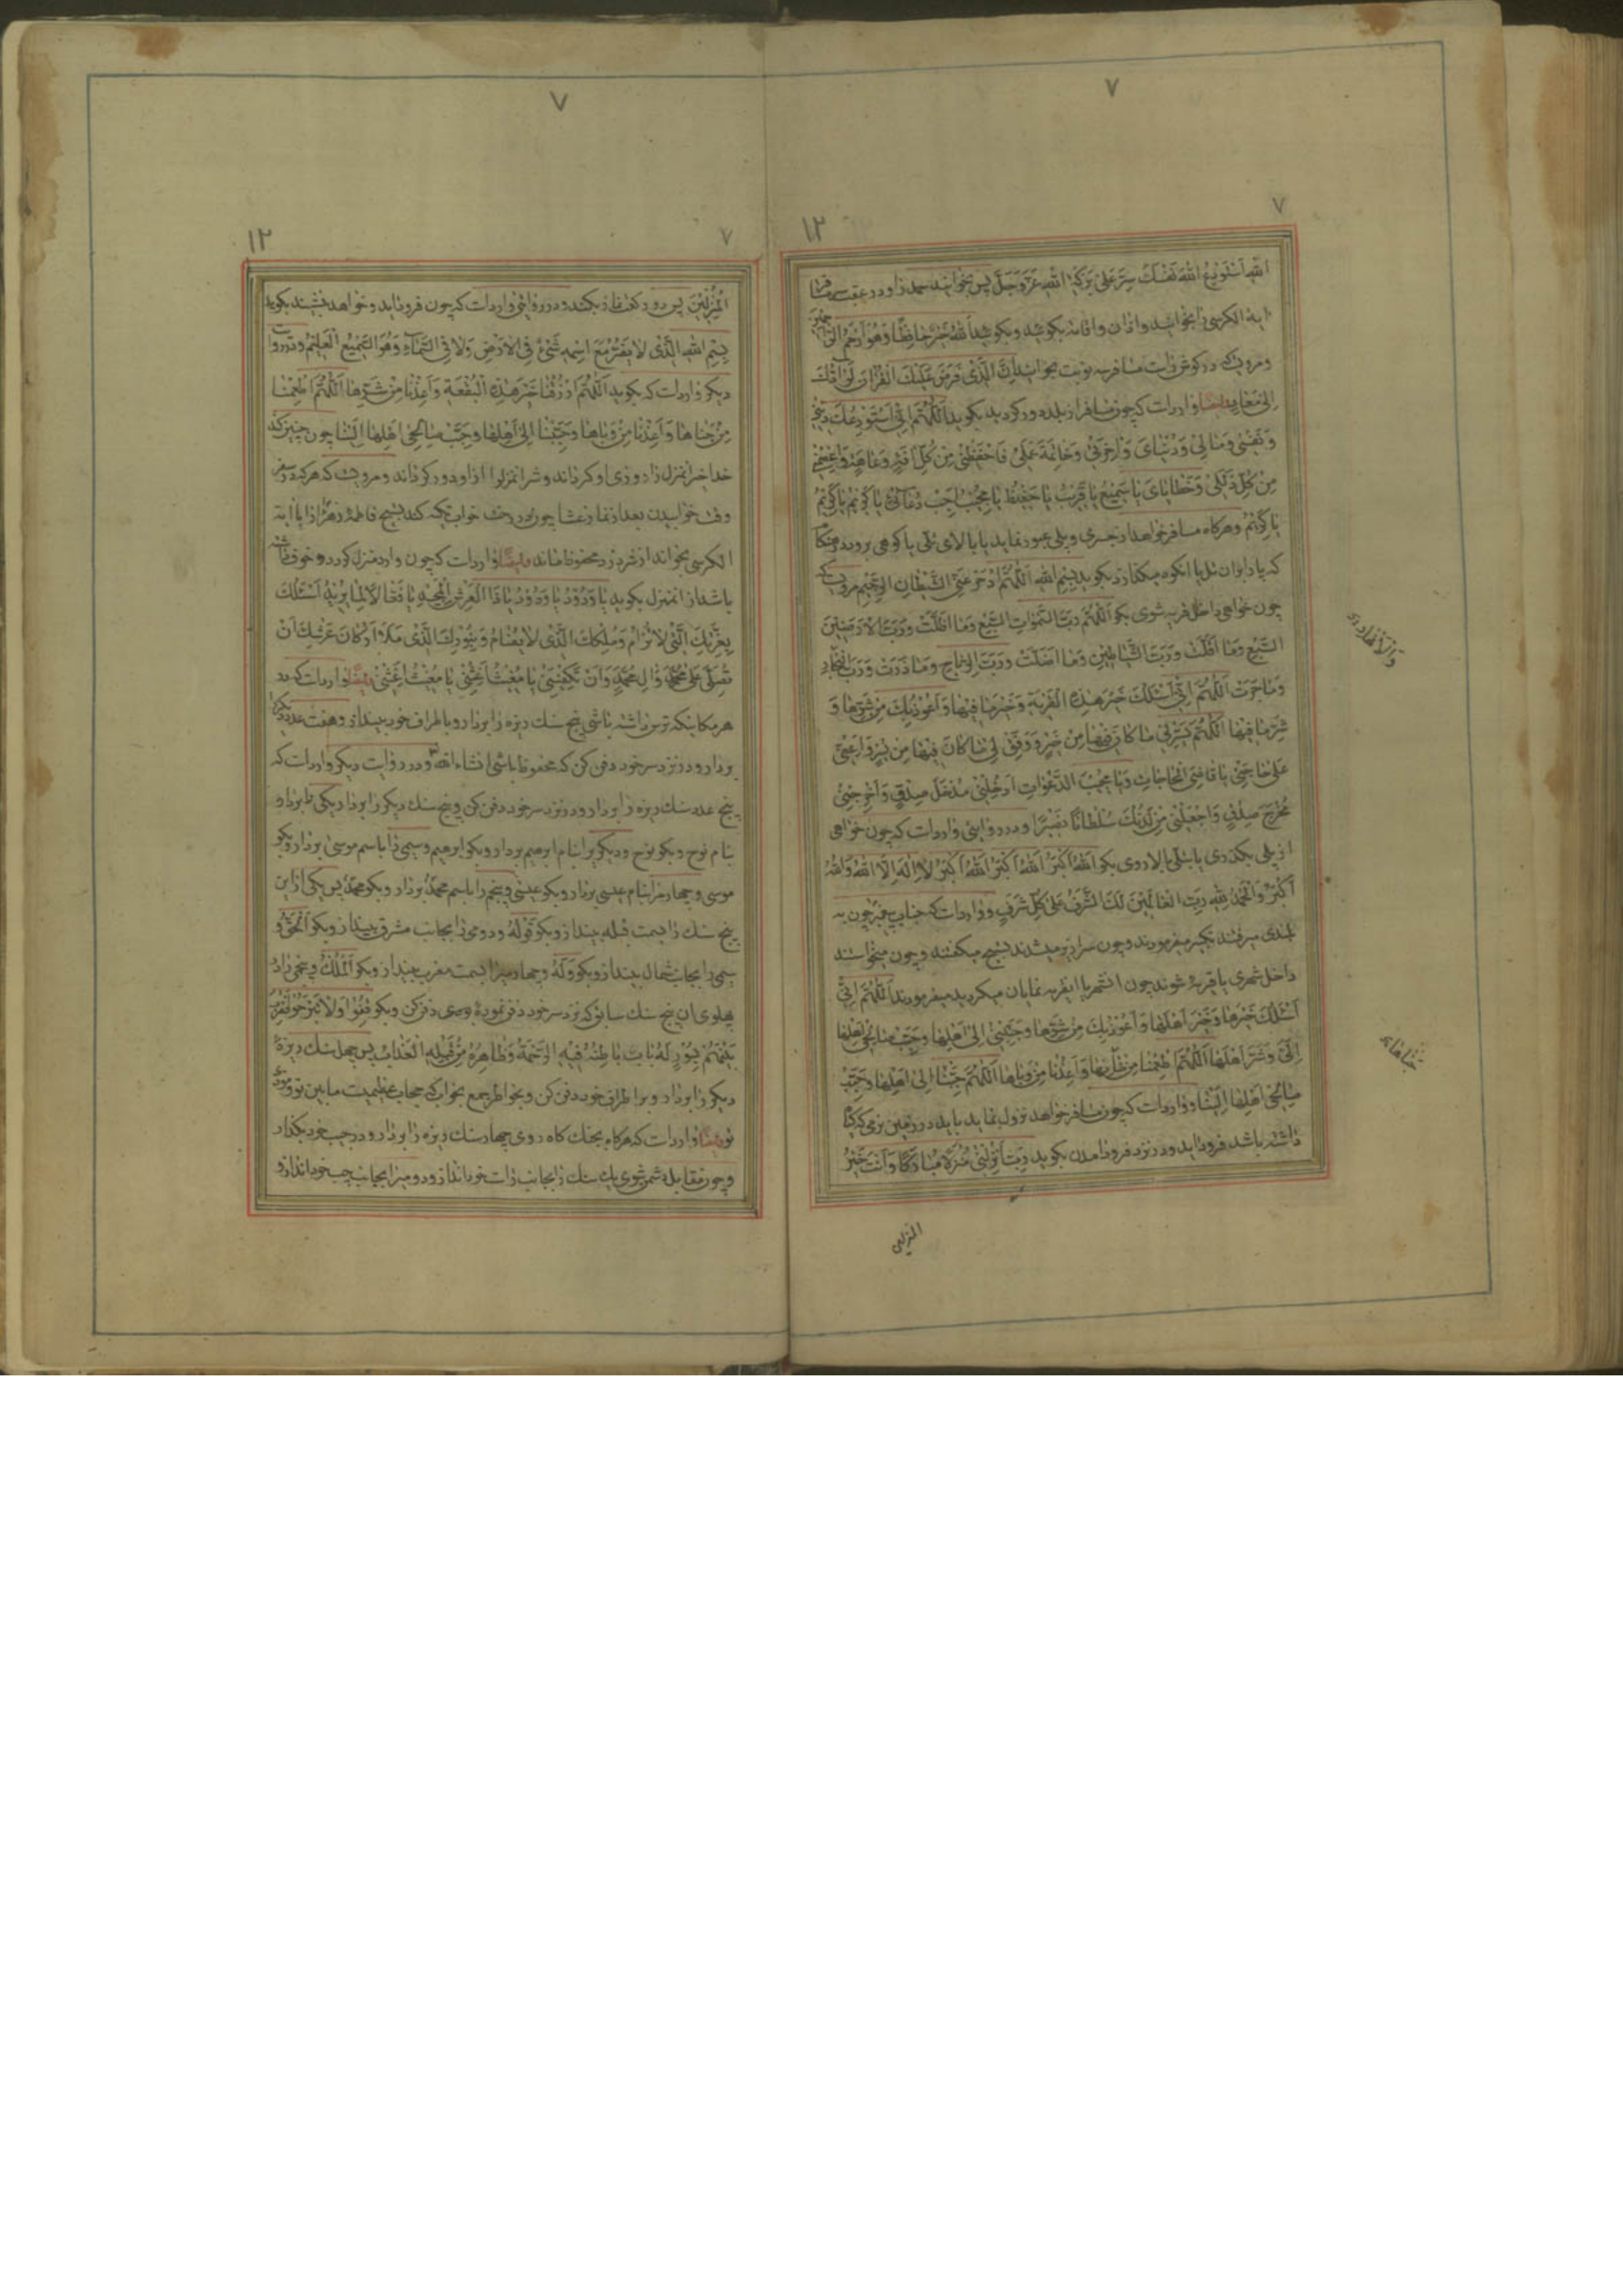 ٧
٧
١٢
الله استودع الله نفسك سر على بركة الله عز وجل پس بخوانند حمد را و در عقب مسافر
اية الكرسى را بخوانند واذان واقامه بكويند وبكويند اَللهُ خَيْرٌ حافِظًا وَهُوَ اَرْحَمُ الرّاحمين
ومرويست كه در كوش راست مسافر سه نوبت بخوانند اِنَّ الَّذى فَرَضَ عَلَيْكَ الْقُرْانَ لَرادُّكَ
اِلى مَعاد ايضًا وارد است كه چون مسافر از بلده دور كردد بكويد اَللّهُمَّ اِنّى اَسْتَوْدِعُكَ دينى
وَنَفْسى وَمالى وَدُنْياىَ وَاخِرَتى وَخاتِمَةَ عَمَلى فَاحْفَظْنى مِنْ كُلِّ افَةٍ وَعاهَةٍ وَاعْصِمْنى
مِنْ كُلِّ زَلَلى وَخَطاياىَ يا سَميعُ يا قَريبُ يا حَفيظُ يا مُجيبُ اَجِبْ دُعائى يا كَريمُ يا كَريمُ
يا كَريمُ وهركاه مسافر خواهد از جسرى وپلى عبور نمايد يا بالاى تلى يا كوهى برود در هنكام
كه پا در ان تل يا انكوه ميكذارد بكويد بِسْمِ اللهِ اَللّهُمَّ ادْحَرْ عَنِّى الشَّيْطانَ الرَّجيمَ مرويست كه
چون خواهى داخل قريه شوى بكو اَللّهُمَّ رَبَّ السَّمواتِ السَّبْعِ وَما اَظَلَّتْ وَرَبَّ الاَرَضينَ
السَّبْعِ وَما اَقَلَّتْ وَرَبَّ الشَّياطينِ وَما اَضَلَّتْ وَرَبَّ الرِّياحِ وَما ذَرَتْ وَرَبَّ الْبِحارِ
وَالاَنْهارِ
وَما جَرَتْ اَللّهُمَّ اِنّى اَسْئَلُكَ خَيْرَ هذِهِ الْقَرْيَةِ وَخَيْرَ ما فيها وَاَعُوذُ بِكَ مِنْ شَرِّها وَ
شَرِّ ما فيها اَللّهُمَّ يَسِّرْ لى ما كانَ فيها مِنْ خَيْرٍ وَوَفِّقْ لى ما كانَ فيها مِنْ يُسْرٍ وَاَعِنّى
عَلى حاجَتى يا قاضِىَ الْحاجاتِ وَيا مُجيبَ الدَّعَواتِ اَدْخِلْنى مُدْخَلَ صِدْقٍ وَاَخْرِجْنى
مُخْرَجَ صِدْقٍ وَاجْعَلْ لى مِنْ لَدُنْكَ سُلْطانًا نَصيرًا ودر روايتى وارد است كه چون خواهى
از پلى بكذرى يا بتلى بالا روى بكو اَللهُ اَكْبَرُ اَللهُ اَكْبَرُ اَللهُ اَكْبَرُ لا اِلهَ اِلاَّ اللهُ وَاللهُ
اَكْبَرُ وَالْحَمْدُ لِلّهِ رَبِّ الْعالَمينَ لَكَ الشَّرَفُ عَلى كُلِّ شَرَفٍ ووارد است كه جناب پيغمبر چون به
بلندى ميرفتند تكبير ميفرمودند وچون سرازير ميشدند تسبيح ميكفتند وچون ميخواستند
داخل شهرى يا قريۀ شوند چون انشهر يا انقريه نمايان ميكرديد ميفرمودند اَللّهُمَّ اِنّى
اَسْئَلُكَ خَيْرَها وَخَيْرَ اَهْلِها وَاَعُوذُ بِكَ مِنْ شَرِّها وَحَبِّبْنى اِلى اَهْلِها وَحَبِّبْ صالِحى اَهْلِها
اِلَىَّ وَشَرِّ اَهْلِها اَللّهُمَّ اَطْعِمْنا مِنْ وَاَعِذْنا مِنْ وَباها اَللّهُمَّ حَبِّبْنا اِلى اَهْلِها وَحَبِّبْ
جناها
صالِحى اَهْلِها اِلَيْنا ووارد است كه چون مسافر خواهد نزول نمايد بايد در زمين نرمى كه كياه
داشته باشد فرود ايد ودر نزد فرود امدن بكويد رَبِّ اَنْزِلْنى مُنْزَلاً مُبارَكًا وَاَنْتَ خَيْرُ
المنزلين
٧
٧
١٢
الْمُنْزِلينَ پس دو ركعت نماز بكند ودر روايتى وارد است كه چون فرود ايد وخواهد بنشيند بكويد
بِسْمِ اللهِ الَّذى لا يَضُرُّ مَعَ اسْمِهِ شَىْءٌ فِى الاَرْضِ وَلا فِى السَّماءِ وَهُوَ السَّميعُ الْعَليمُ ودر روايت
ديكر وارد است كه بكويد اَللّهُمَّ ارْزُقْنا خَيْرَ هذِهِ الْبُقْعَةِ وَاَعِذْنا مِنْ شَرِّها اَللّهُمَّ اَطْعِمْنا
مِنْ جَناها وَاَعِذْنا مِنْ وَباها وَحَبِّبْنا اِلى اَهْلِها وَحَبِّبْ صالِحى اَهْلِها اِلَيْنا چون چنين كند
خدا خير انمنزل را روزى او كرداند وشر انمنزل را از او دور كرداند ومرويست كه هركه در سفر
وقت خوابيدن بعد از نماز عشا چون در رخت خواب تكيه كند تسبيح فاطمۀ زهرا را با اية
الكرسى بخواند از شر دزد محفوظ ماند ايضًا وارد است كه چون وارد منزل كردد وخوف داشته
باشد از انمنزل بكويد يا وَدُودُ يا وَدُودُ يا ذَا الْعَرْشِ الْمَجيدِ يا فَعّالاً لِما يُريدُ اَسْئَلُكَ
بِعِزَّتِكَ الَّتى لا تُرامُ وَمُلْكِكَ الَّذى لا يُضامُ وَبِنُورِكَ الَّذى مَلاَ اَرْكانَ عَرْشِكَ اَنْ
تُصَلِّىَ عَلى مُحَمَّدٍ وَالِ مُحَمَّدٍ وَاَنْ تَكْفِيَنى يا مُغيثُ اَغِثْنى يا مُغيثُ اَغِثْنى ايضًا وارد است كه در
هر مكانيكه ترس داشته باشى پنج سنك ريزه را بردار وباطراف خود بينداز وهفت عدد ديكر را
بردار ودر نزد سر خود دفن كن كه محفوظ باشى انشاء الله ودر روايت ديكر وارد است كه
پنج عدد سنك ريزه را بردار ودر نزد سر خود دفن كن وپنج سنك ديكر را بردار يكى را بردار
بنام نوح وبكو نوح وديكر را بنام ابرهيم بردار وبكو ابرهيم وسيمى را باسم موسى بردار وبكو
موسى وچهارم را بنام عيسى بردار وبكو عيسى وپنجم را باسم محمد بردار وبكو محمد پس يكى از اين
پنج سنك را بسمت قبله بينداز وبكو قَوْلُهُ ودومى را بجانب مشرق بينداز وبكو اَلْحَقُّ و
سيمى را بجانب شمال بينداز وبكو وَلَهُ وچهارم را بسمت مغرب بينداز وبكو اَلْمُلْكُ وپنجمى را در
پهلوى ان پنج سنك سابق كه نزد سر خود دفن نمودۀ دفن كن وبكو
بَيْنَهُمْ بِسُورٍ لَهُ بابٌ باطِنُهُ فيهِ الرَّحْمَةُ وَظاهِرُهُ مِنْ قِبَلِهِ الْعَذابُ پس چهل سنك ريزۀ
ديكر را بردار وبر اطراف خود دفن كن وبخواطر جمع بخواب كه حجاب عظيميست مابين تو ودزد
ايضًا وارد است كه هركاه بجنك كاه روى چهار سنك ريزه را بردار ودر جيب خود بكذار
وچون مقابل دشمن شوى يك سنك را بجانب راست خود انداز ودويم را بجانب چپ خود انداز و